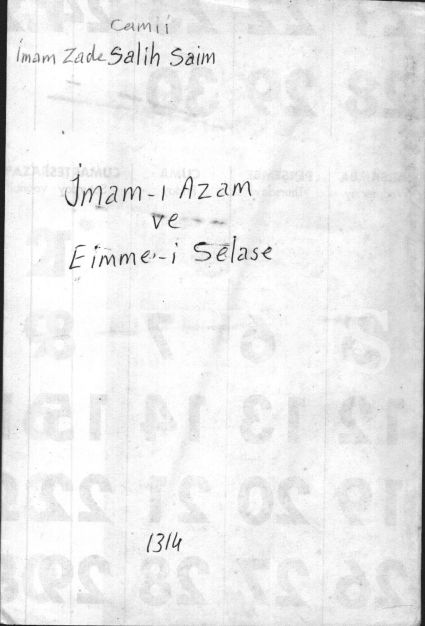 Camii
İmam Zade Salih Saim
İmam-ı Azam
ve
Eimme-i Selase
1314